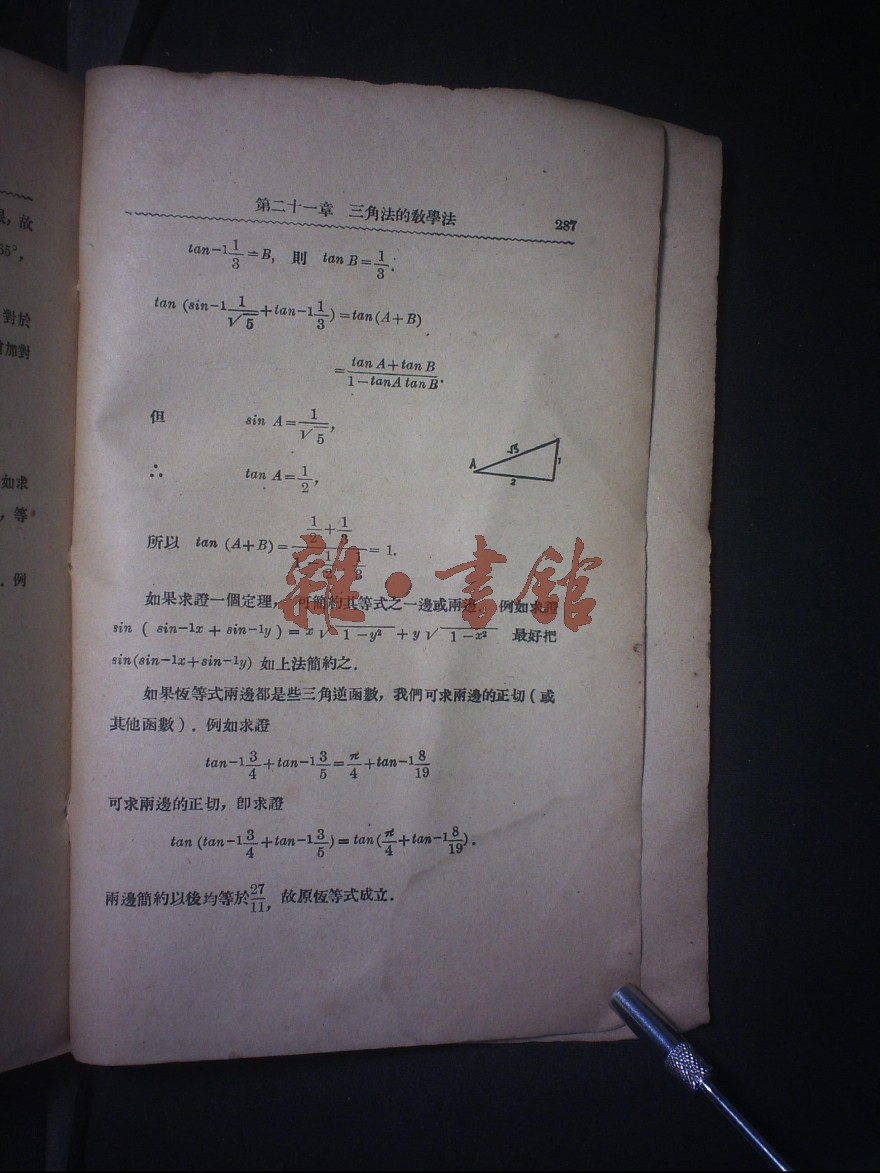 限，故
65°，
對於
加對
如求
，等
．例
第二十一章　三角法的教學法　287
tan-1 1/3 = B, 則 tan B = 1/3.
tan (sin-1 1/√5 + tan-1 1/3) = tan(A+B)
= (tan A + tan B)/(1 - tanA tan B).
但　sin A = 1/√5,
∴　tan A = 1/2,
A √5 1 2
所以 tan (A+B) = (1/2 + 1/3)/(1 - 1/2 1/3) = 1.
雜·書館
如果求證一個定理，可簡約其等式之一邊或兩邊．例如求證
sin ( sin-1x + sin-1y ) = x√1-y² + y√1-x² 最好把
sin(sin-1x+sin-1y) 如上法簡約之．
如果恆等式兩邊都是些三角逆函數，我們可求兩邊的正切（或
其他函數）．例如求證
tan-1 3/4 + tan-1 3/5 = π/4 + tan-1 8/19
可求兩邊的正切，卽求證
tan (tan-1 3/4 + tan-1 3/5) = tan(π/4 + tan-1 8/19).
兩邊簡約以後均等於27/11，故原恆等式成立．